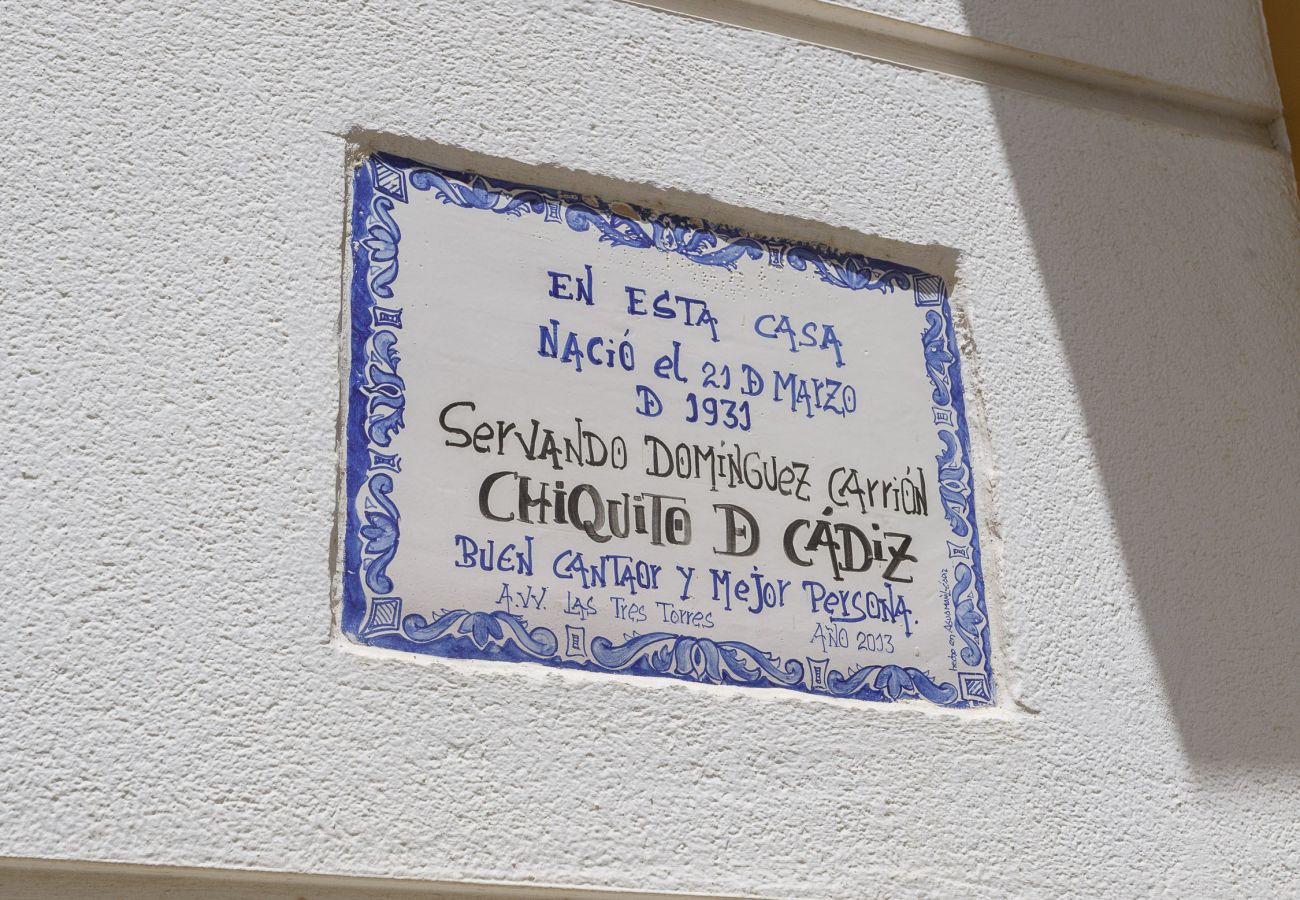 EN ESTA CASA
NACIÓ el 21 D MARZO
D 1931
SERVANDO DOMÍNGUEZ CARRIÓN
CHIQUITO D CÁDIZ
BUEN CANTAOR Y MEJOR PERSONA.
A.VV. LAS TRES TORRES
AÑO 2013
hecho en